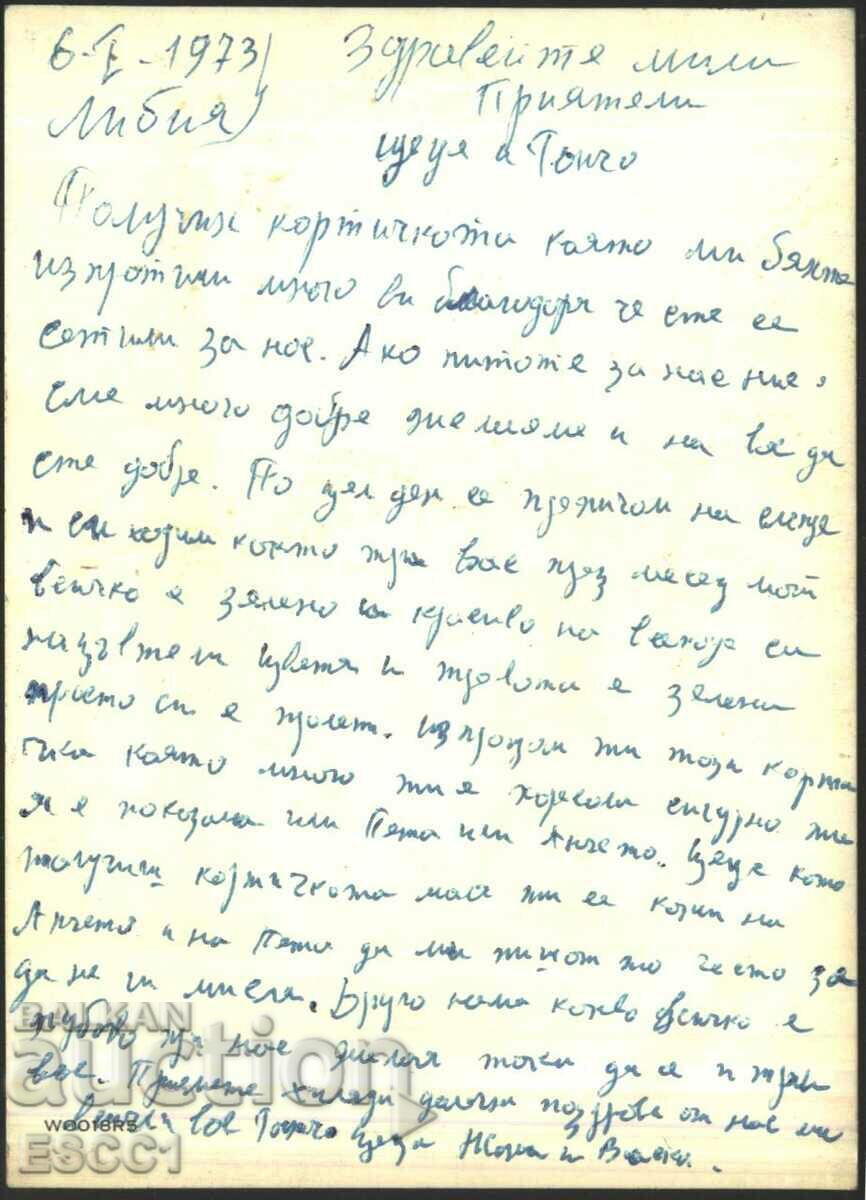 6-I-1973/ Здравейте мили
Либия/ Приятели
Цеця и Тончо
Получих картичката която ми бяхте
изпратили много ви благодаря че сте се
сетили за нас. Ако питате за нас ние
сме много добре желаем и на вас да
сте добре. По цял ден се препичам на слънце
и си ходим както при вас през месец май
всичко е зелено и красиво на
нацъвтели цветя и тревата е зелена
просто си е пролет. Изпращам ти тази карти
чка която много ти е харесала сигурно ти
я е показала или Пепа или Анчето. Цеце като
получиш картичката май ти се кажи на
Анчето и на Пепа да ми пишат по често за
да не ги мисля. Друго няма какво всичко е
хубаво при нас желая тока да е и при
вас. Приемете хиляди далечни поздрави от нас ми
всички вас Тончо Цеца Жора и Васко.
BALKAN
auction
WOO18R5
ESCC1